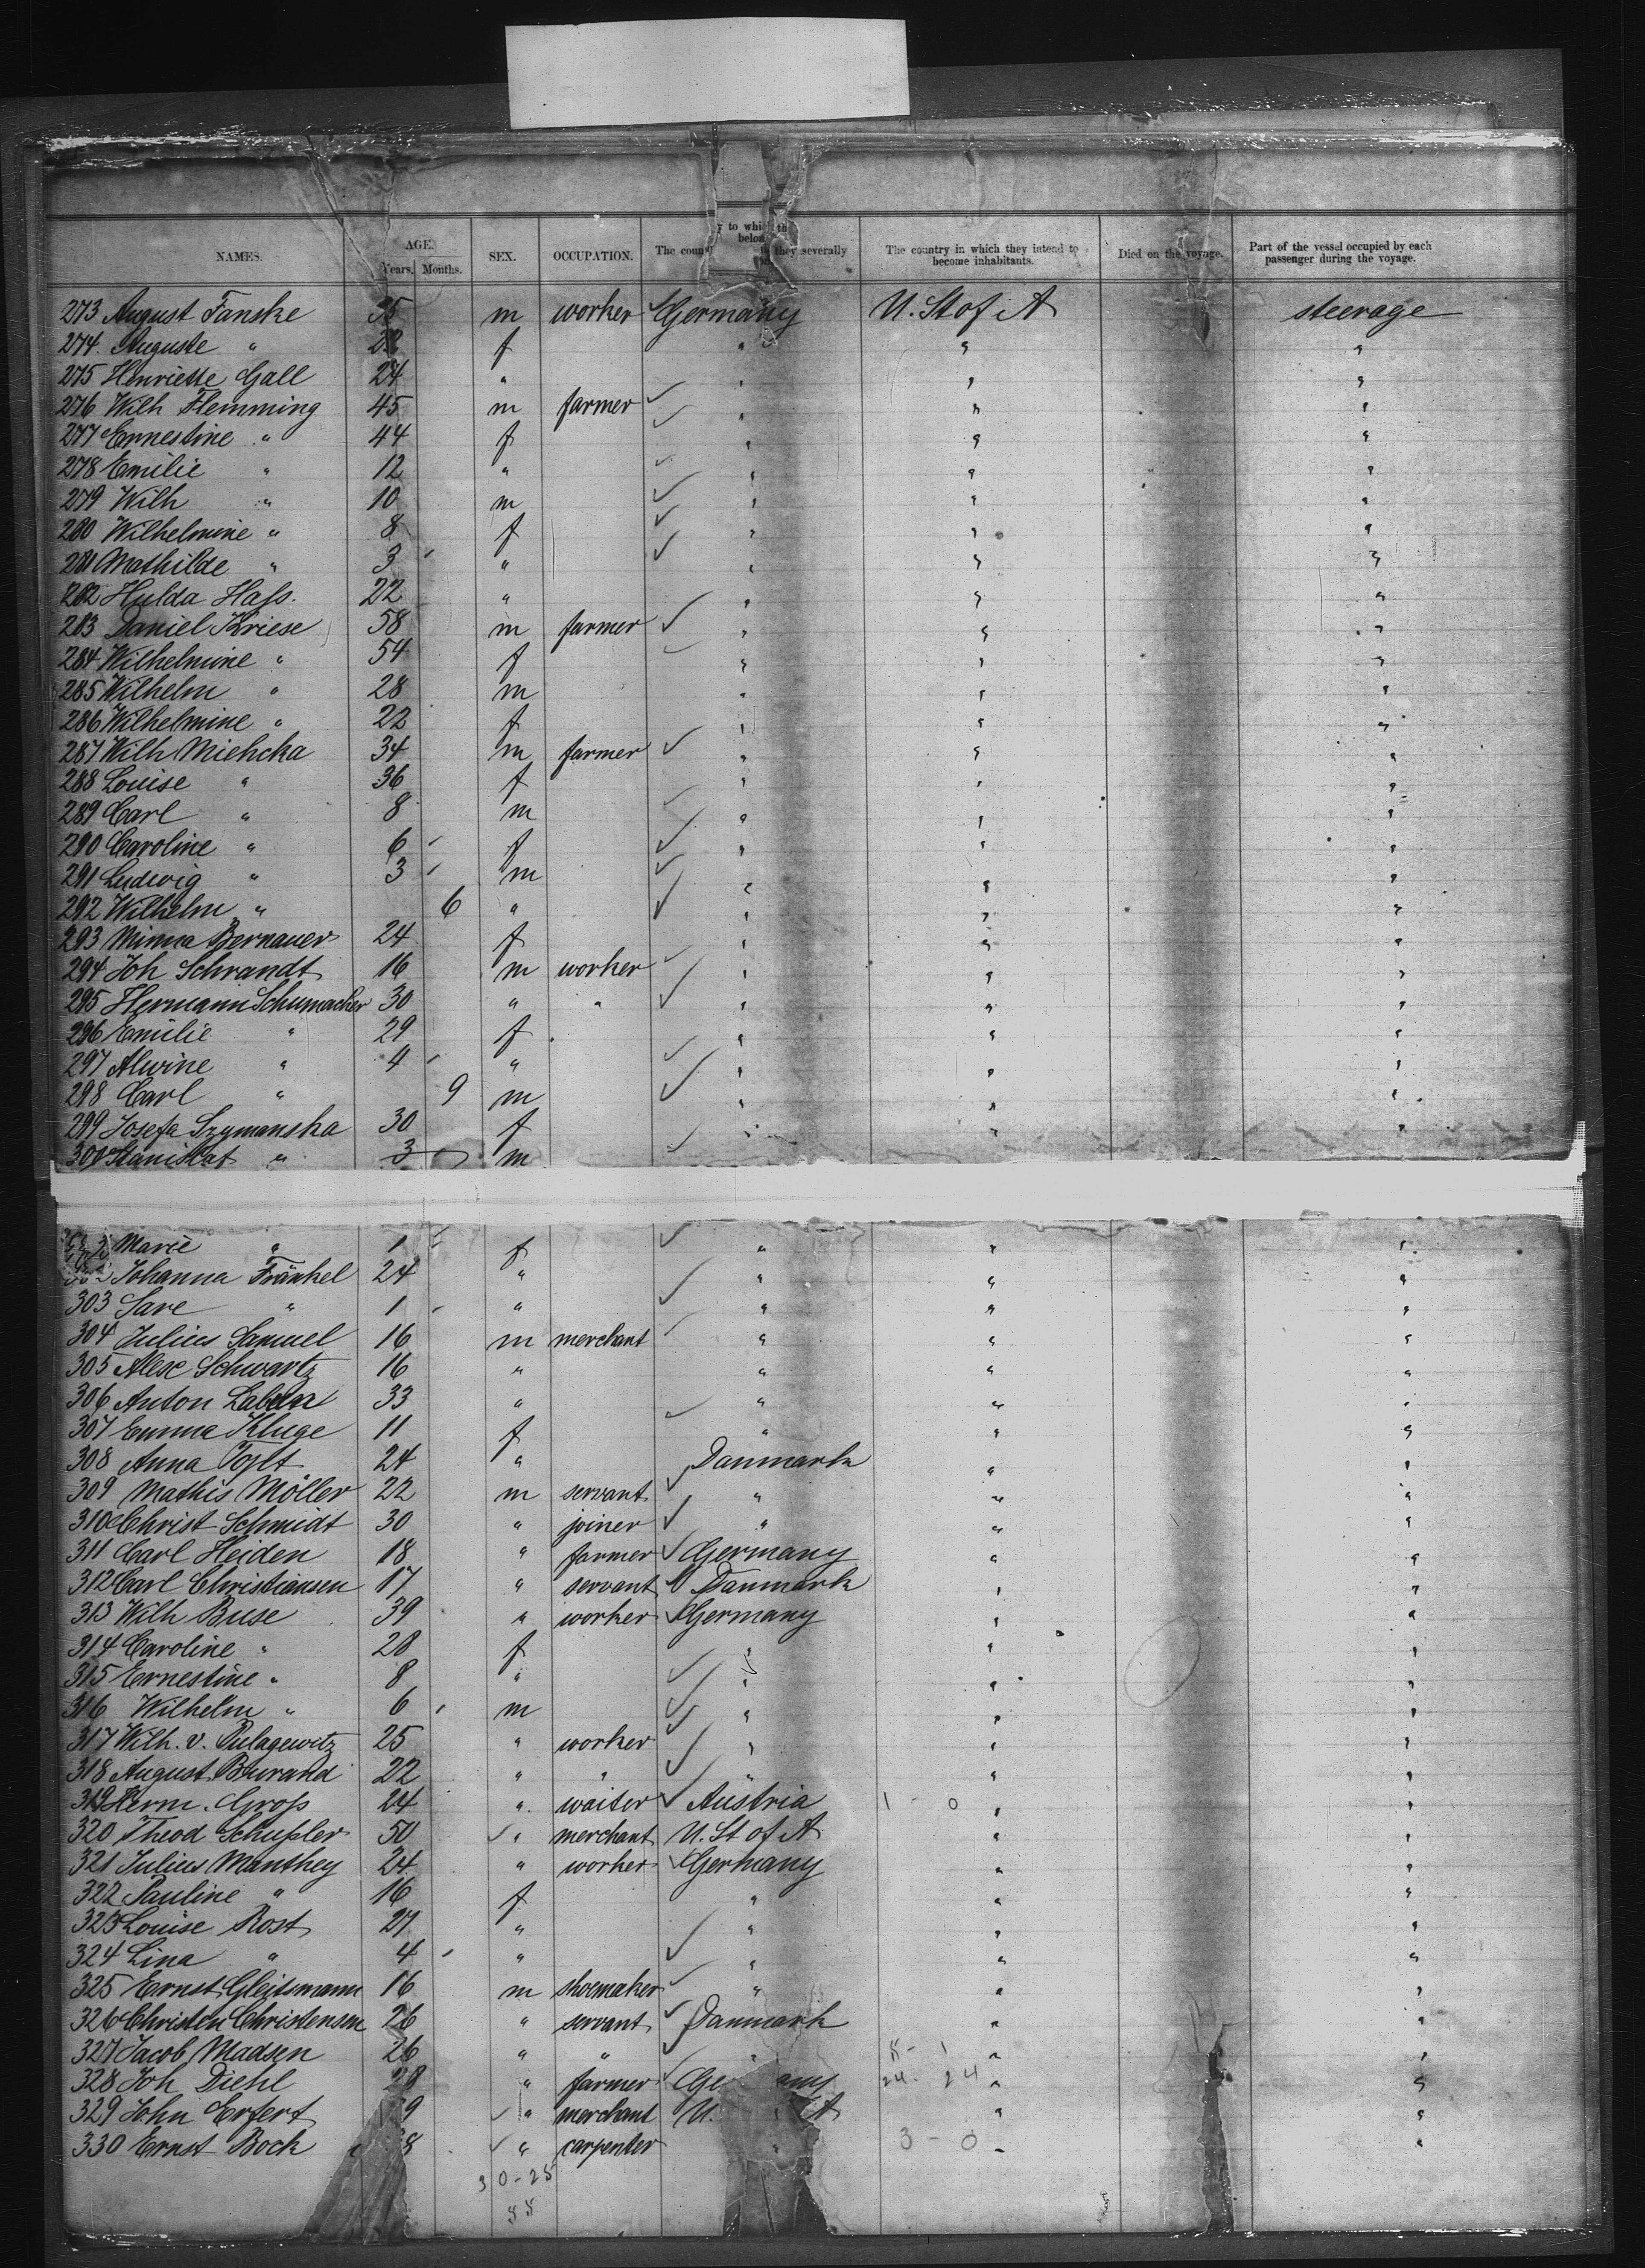 NAMES. AGE. Years. Months. SEX. OCCUPATION. The country to which they severally belong. The country in which they intend to become inhabitants. Died on the voyage. Part of the vessel occupied by each passenger during the voyage.
273 August Fanske 35 m worker Germany U. St of A steerage
274 Auguste " f " " "
275 Henriette Gall 24 " " " "
276 Wilh Flemming 45 m farmer " " "
277 Ernestine " 44 f " " "
278 Emilie " 12 " " " "
279 Wilh " 10 m " " "
280 Wilhelmine " 8 f " " "
281 Mathilde " 3 " " " "
282 Hulda Hass. 22 " " " "
283 Daniel Kriese 58 m farmer " " "
284 Wilhelmine " 54 f " " "
285 Wilhelm " 28 m " " "
286 Wilhelmine " 22 f " " "
287 Wilh Miehcka 34 m farmer " " "
288 Louise " 36 f " " "
289 Carl " 8 m " " "
290 Caroline " 6 f " " "
291 Ludwig " 3 m " " "
292 Wilhelm " 6 " " " "
293 Minna Bernauer 24 f " " "
294 Joh Schrandt 16 m worker " " "
295 Hermann Schumacher 30 " " " " "
296 Emilie " 29 f " " "
297 Alwine " 4 " " " "
298 Carl " 9 m " " "
299 Josefa Szymanska 30 f " " "
300 Stanislat " 3 m
Marie " 1 f " " "
302 Johanna Fränkel 24 " " " "
303 Sare " 1 " " " "
304 Julius Samuel 16 m merchant " " "
305 Alex Schwartz 16 " " " "
306 Anton 33 " " " "
307 Emma Kluge 11 f " " "
308 Anna Toft 24 " Danmark " "
309 Mathis Möller 22 m servant " " "
310 Christ Schmidt 30 " joiner " " "
311 Carl Heiden 18 " farmer Germany " "
312 Carl Christiansen 17 " servant Danmark " "
313 Wilh Buse 39 " worker Germany " "
314 Caroline " 28 f " " "
315 Ernestine " 8 " " " "
316 Wilhelm " 6 m " " "
317 Wilh. v. Pulagewitz 25 " worker " " "
318 August Burand 22 " " " " "
319 Herm. Gross 24 " waiter Austria 1 - 0 " "
320 Theod Schussler 50 " merchant U. St of A " "
321 Julius Manthey 24 " worker Germany " "
322 Pauline " 16 f " " "
323 Louise Rost 27 " " " "
324 Lina " 4 " " " "
325 Ernst Gleitsmann 16 m shoemaker " " "
326 Christen Christensen 26 " servant Danmark " "
327 Jacob Madsen 26 " " " " "
328 Joh Diehl " farmer Ge any 24 - 24 " "
329 John Erfert 9 " merchant U. A " "
330 Ernst Bock 8 " carpenter " 3 - 0 " "
30 - 25
55